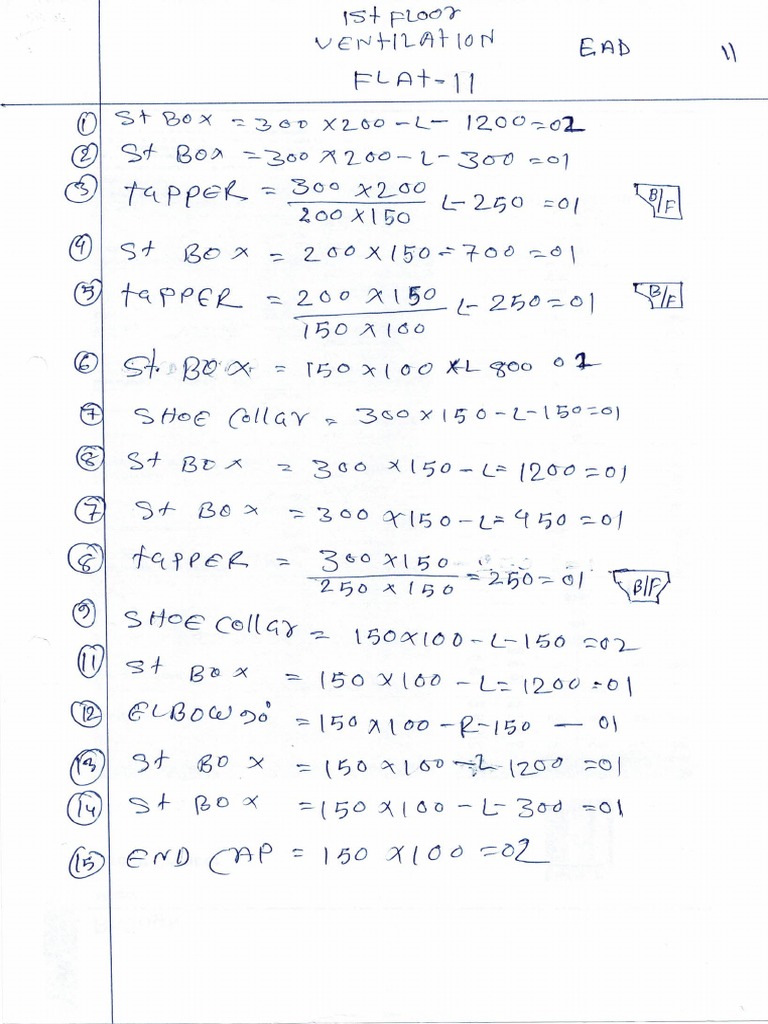 1St FLOOr
VENTILATION EAD 11
FLAt-11
① St BOX = 300 X 200 - L - 1200 = 02
② St BOX = 300 X 200 - L - 300 = 01
③ tAPPER = 300 X 200 / 200 X 150 L - 250 = 01 B/F
④ St BOX = 200 X 150 = 700 = 01
⑤ tAPPER = 200 X 150 / 150 X 100 L - 250 = 01 B/F
⑥ St. BOX = 150 X 100 X L 800 02
⑦ SHOE Collar = 300 X 150 - L - 150 = 01
⑧ St BOX = 300 X 150 - L = 1200 = 01
⑦ St BOX = 300 X 150 - L = 450 = 01
⑧ tAPPER = 300 X 150 / 250 X 150 = 250 = 01 B/F
⑨ SHOE Collar = 150 X 100 - L - 150 = 02
⑪ St BOX = 150 X 100 - L = 1200 = 01
⑫ ELBOW 90° = 150 X 100 - R - 150 - 01
⑬ St BOX = 150 X 100 - L 1200 = 01
⑭ St BOX = 150 X 100 - L - 300 = 01
⑮ END CAP = 150 X 100 = 02